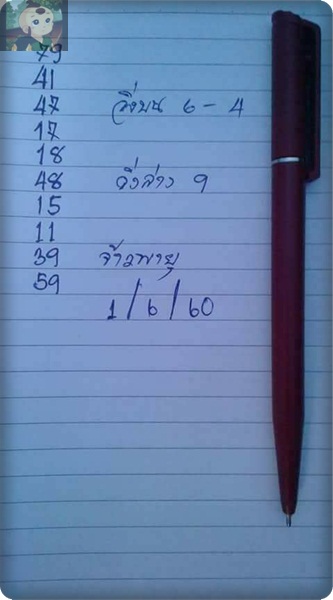 79
41
47
17
18
48
15
11
39
59
วิ่งบน 6 - 4
วิ่งล่าง 9
จ้าวพายุ
1/6/60